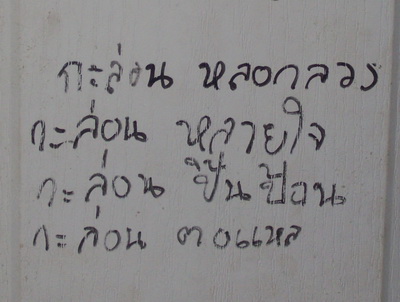 กะล่อน หลอกลวง
กะล่อน หลายใจ
กะล่อน ปิ้นป้อน
กะล่อน ตอแหล